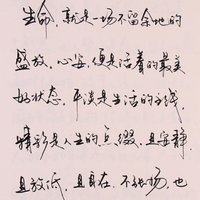 生命，就是一场不留余地的
盛放，心安，便是活着的最美
好状态，平淡是生活的主线，
精彩是人生的点缀，且安静，
且放低，且自在，不张扬，也